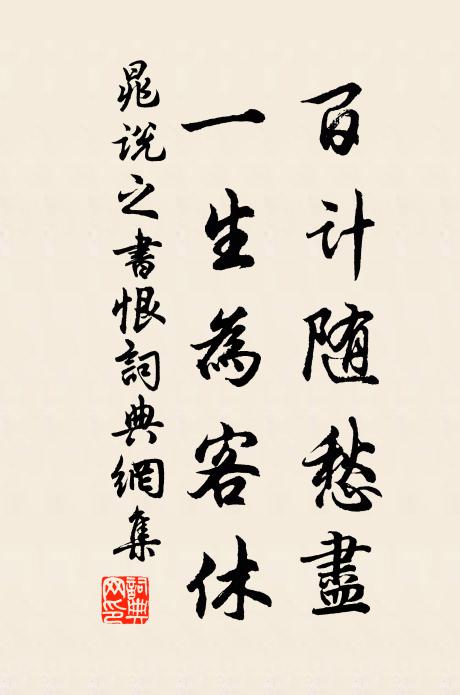 百计随愁盡
一生為客休
晁说之書恨詞典網集
詞典網印